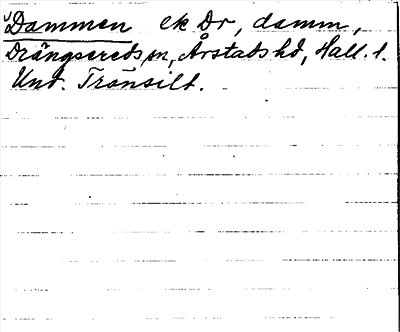 Dammen ek Dr, damm,
Drängsereds sn, Årstads hd, Hall. l.
Und. Tränsilt.